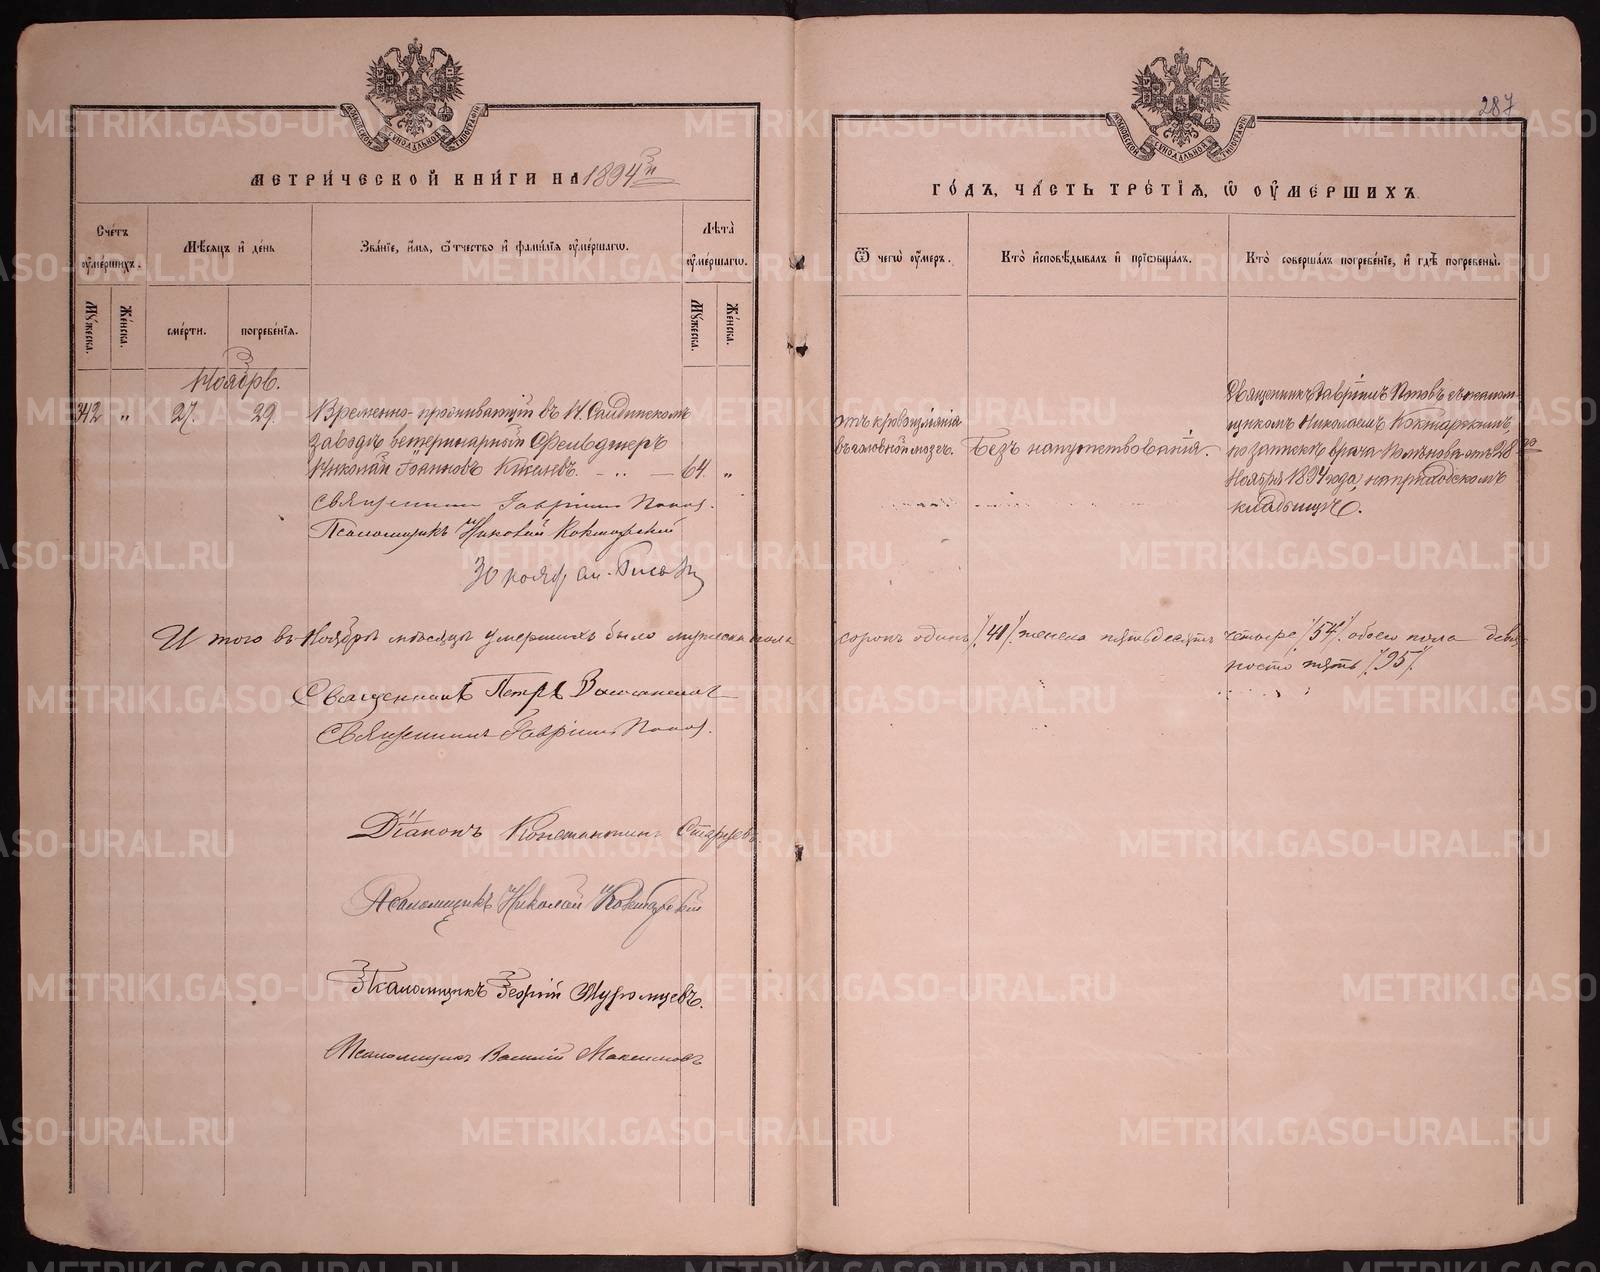 287
МЕТРИЧЕСКОЙ КНИГИ НА 1894й
Счетъ умершихъ.
Мѣсяцъ и день
Званіе, имя, отчество и фамилія умершаго.
Лѣта умершаго.
Мужеска.
Женска.
смерти.
погребенія.
Мужеска.
Женска.
Ноябрь.
342 „ 27. 29. Временно-проживающій въ Н. Салдинскомъ
заводѣ ветеринарный Фельдшеръ
Николай Іоанновъ Киселевъ. 64. „
Священникъ Гавріилъ Поповъ.
Псаломщикъ Николай
30 нояб
Итого въ Ноябрѣ мѣсяцѣ умершихъ было мужеска пола
Священникъ Петръ
Священникъ Гавріилъ Поповъ.
Діаконъ Константинъ Старцевъ.
Псаломщикъ Николай
Псаломщикъ Георгій Муромцевъ.
Псаломщикъ Василій Максимовъ
ГОДЪ, ЧАСТЬ ТРЕТІЯ, Ѿ ОУМЕРШИХЪ.
Ѿ чего умеръ.
Кто исповѣдывалъ и пріобщалъ.
Кто совершалъ погребеніе, и гдѣ погребены.
отъ кровоизліянія
въ головной мозгъ. Безъ напутствованія.
Священникъ Гавріилъ Поповъ съ псалом-
щикомъ Николаемъ
по запискѣ врача отъ 28го
Ноября 1894 года, на приходскомъ
кладбищѣ.
сорокъ одинъ /41/ женска пятьдесятъ четыре /54/ обоего пола девя-
носто пять /95/.
METRIKI.GASO-URAL.RU